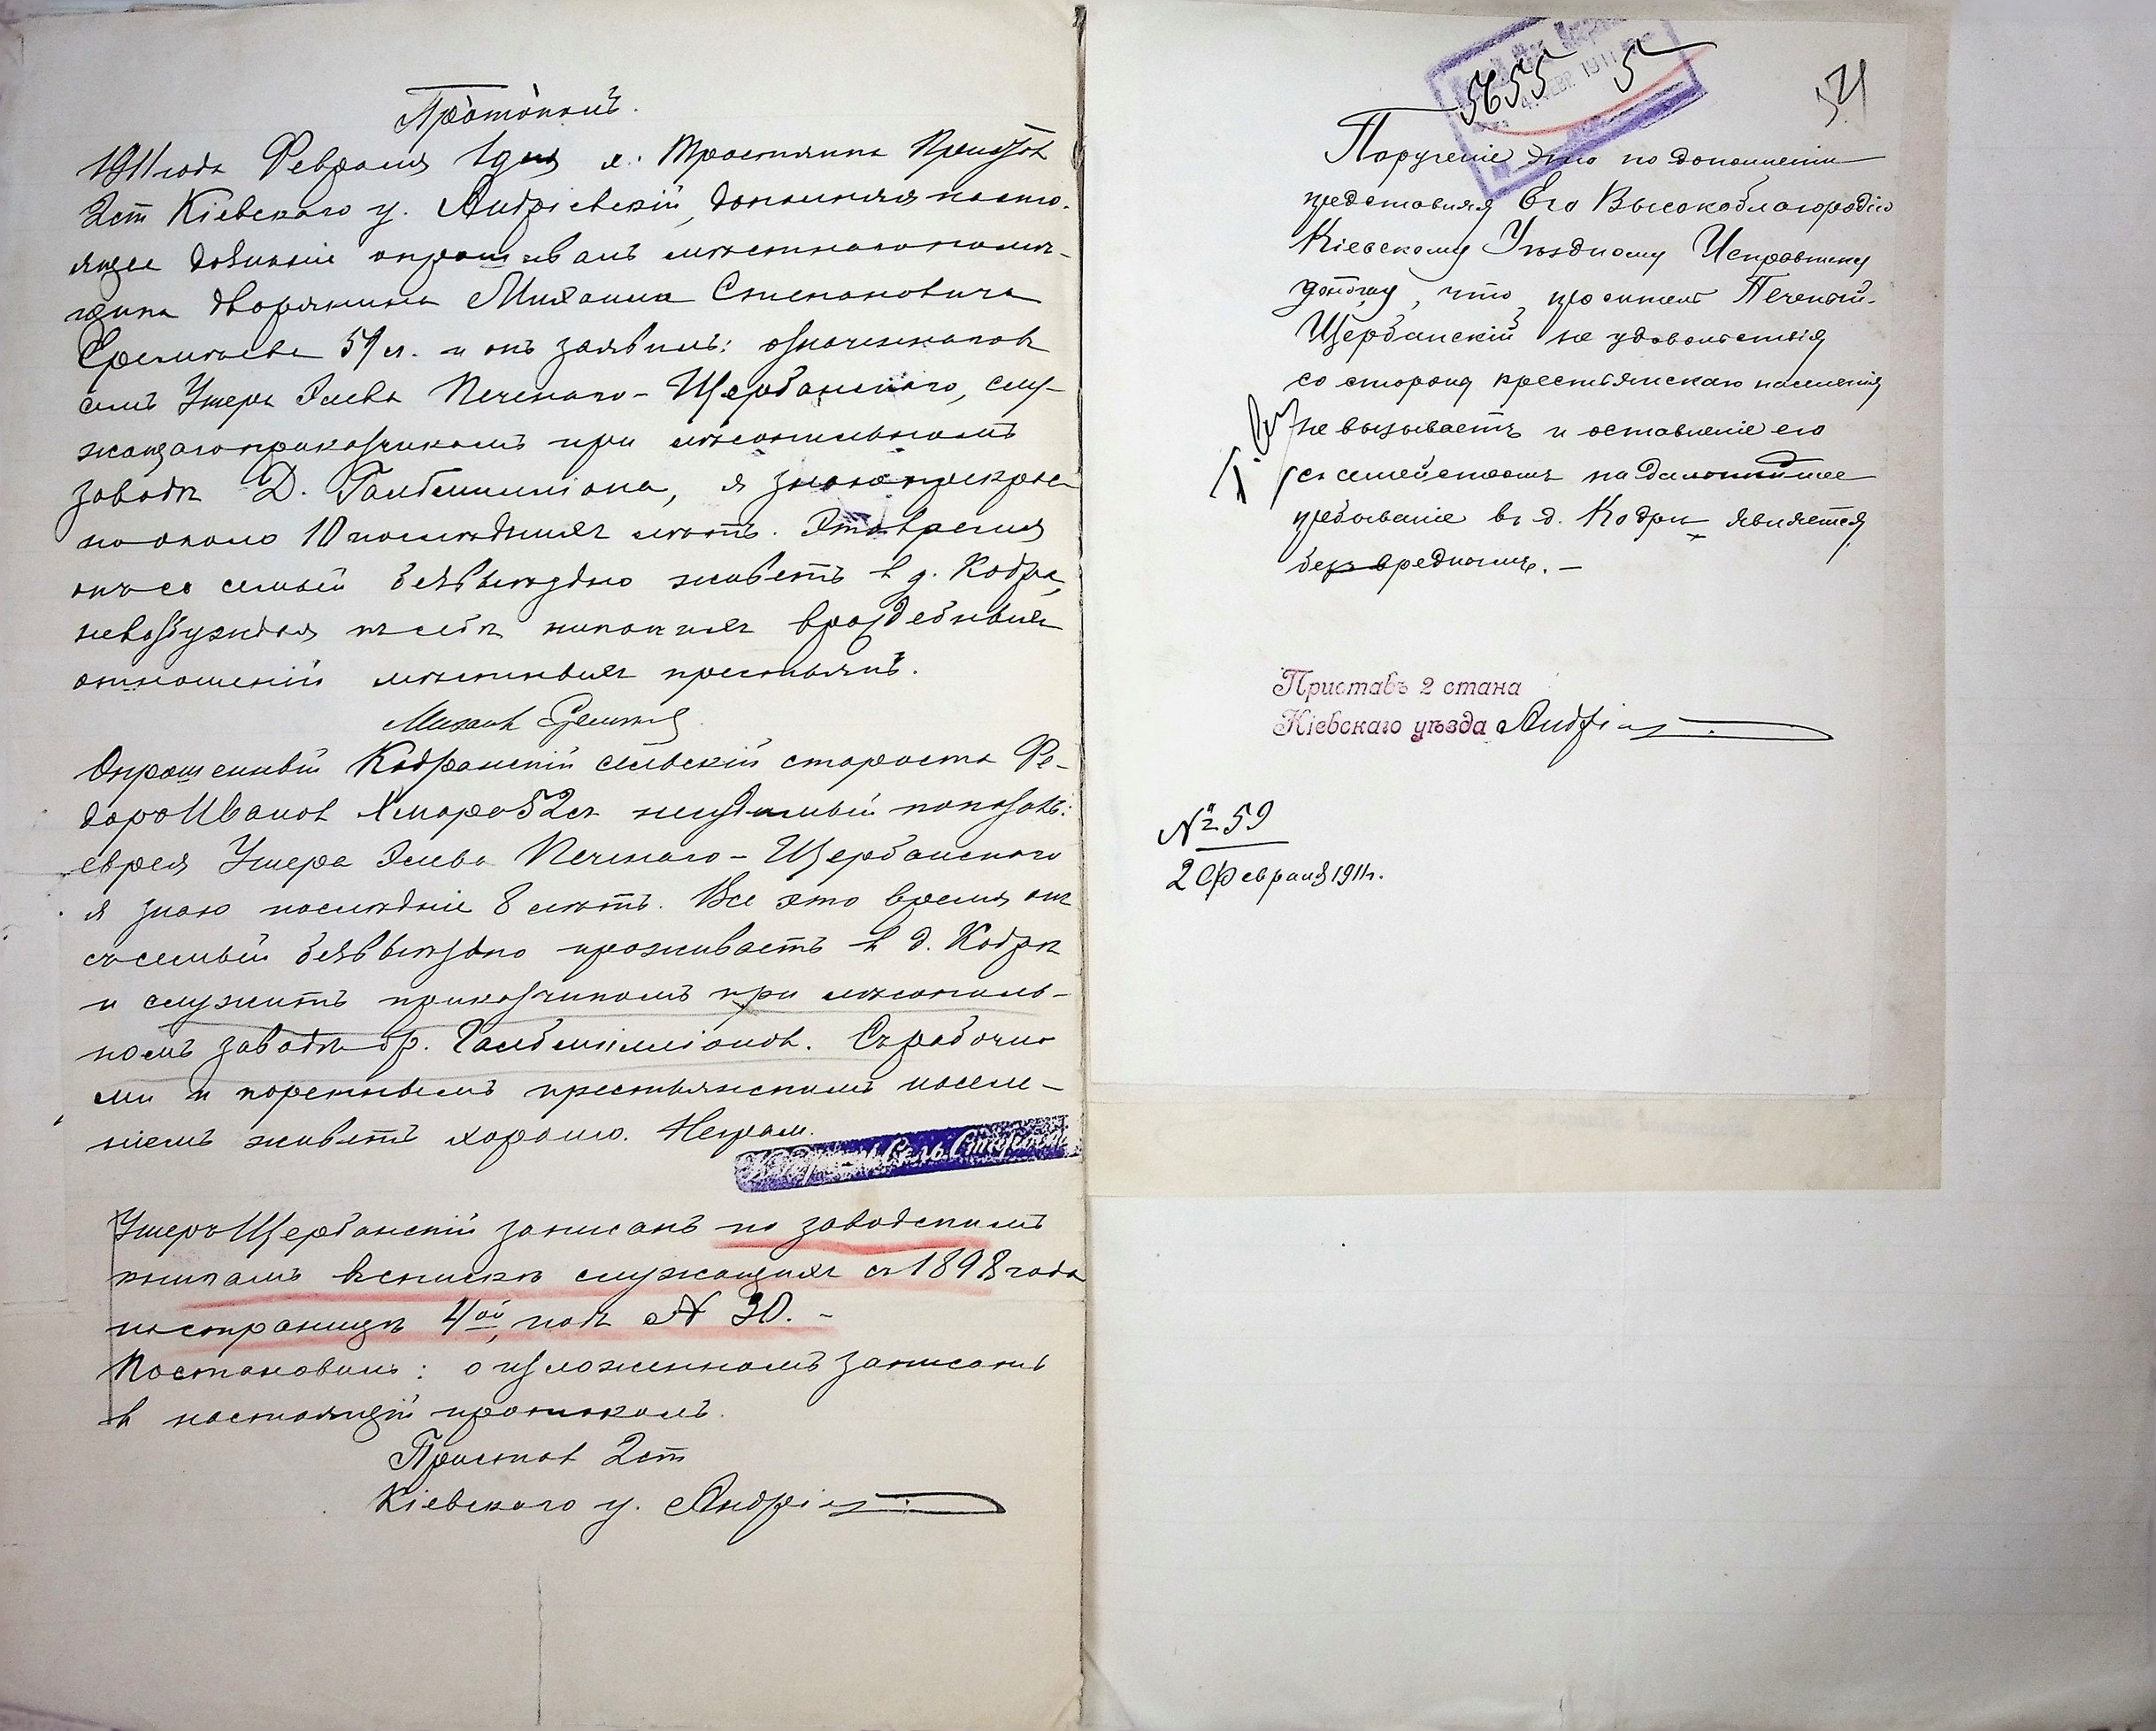 Протоколъ.
1911 года Февраля 1 дня м. Пристава
2 ст Кіевскаго у. Андріевскій, дополняя насто-
ящее дознаніе опрашивалъ мѣстнаго помѣ-
щика дворянина Михаила Степановича
л. и онъ заявилъ:
Ушера Элева Печенаго-Щербанскаго, слу-
жащаго приказчикомъ при лѣсопильномъ
заводѣ Д. Гальбмилліона, я знаю прекрас-
но около 10 послѣднихъ лѣтъ. Это время
онъ со семьей безвыѣздно живетъ в д. Кодрѣ,
невозбуждая къ себѣ никакихъ враждебныхъ
отношеній мѣстныхъ крестьянъ.
Михаилъ
Опрошенный Кодранскій сельскій староста Ѳе-
доръ Ивановъ Хмара 52 л. несудимый показалъ:
еврея Ушера Элева Печенаго-Щербанскаго
я знаю послѣдніе 8 лѣтъ. Все это время онъ
съ семьей безвыѣздно проживаетъ в д. Кодрѣ
и служитъ приказчикомъ при лѣсопиль-
номъ заводѣ бр. Гальбмилліоновъ. Съ рабочи-
ми и кореннымъ крестьянскимъ населе-
ніемъ живетъ хорошо. Неграм.
Сель. Староста
Ушеръ Щербанскій записанъ по заводскимъ
книгамъ въ спискѣ служащихъ съ 1898 года
на страницѣ 4ой, подъ № 30. –
Постановилъ: о изложенномъ записать
в настоящій протоколъ.
Приставъ 2 ст
Кіевскаго у. Андріевскій
5655 5
1911
54
Порученіе это по дополненіи
представляя Его Высокоблагородію
Кіевскому Уѣздному Исправнику
доношу, что проситель Печеный-
Щербанскій неудовольствія
со стороны крестьянскаго населенія
не вызываетъ и оставленіе его
съ семействомъ на дальнѣйшее
пребываніе въ д. Кодрѣ является
безвреднымъ. –
Приставъ 2 стана
Кіевскаго уѣзда Андріевскій
№ 59
2 Февраля 1911 г.